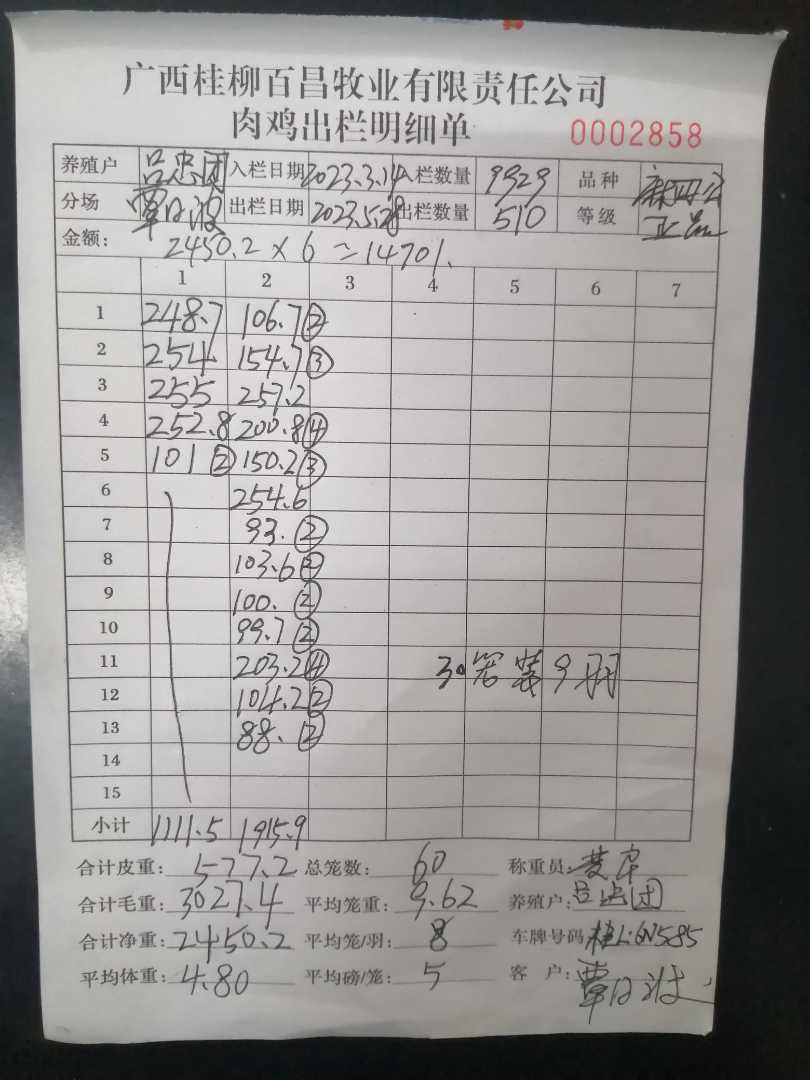 广西桂柳百昌牧业有限责任公司
肉鸡出栏明细单 0002858
养殖户 吕忠团 入栏日期 2023.3.14 入栏数量 9929 品种 麻四公
分场 覃日波 出栏日期 2023.5.28 出栏数量 510 等级 正品
金额: 2450.2×6=14701.
1 2 3 4 5 6 7
1 248.7 106.7②
2 254. 154.7③
3 255 257.2
4 252.8 200.8④
5 101② 150.2③
6 254.6
7 93.②
8 103.6②
9 100.②
10 99.7②
11 203.2④ 30笼装9羽
12 104.2②
13 88.②
14
15
小计 1111.5 1915.9
合计皮重: 577.2 总笼数: 60 称重员:
合计毛重: 3027.4 平均笼重: 9.62 养殖户: 吕忠团
合计净重: 2450.2 平均笼/羽: 8 车牌号码: 桂L·6N585
平均体重: 4.80 平均磅/笼: 5 客户: 覃日波